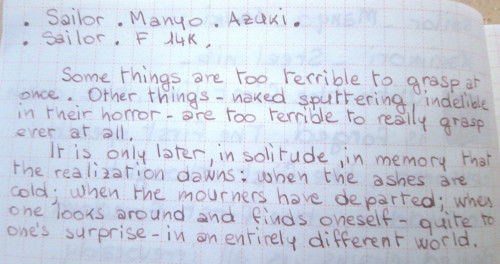 . Sailor . Manyo . Azuki.
. Sailor . F 14K.
Some things are too terrible to grasp at
once. Other things - naked sputtering, indelible
in their horror - are too terrible to really grasp
ever at all.
It is only later, in solitude, in memory that
the realization dawns: when the ashes are
cold; when the mourners have departed; when
one looks around and finds oneself - quite to
one's surprise - in an entirely different world.